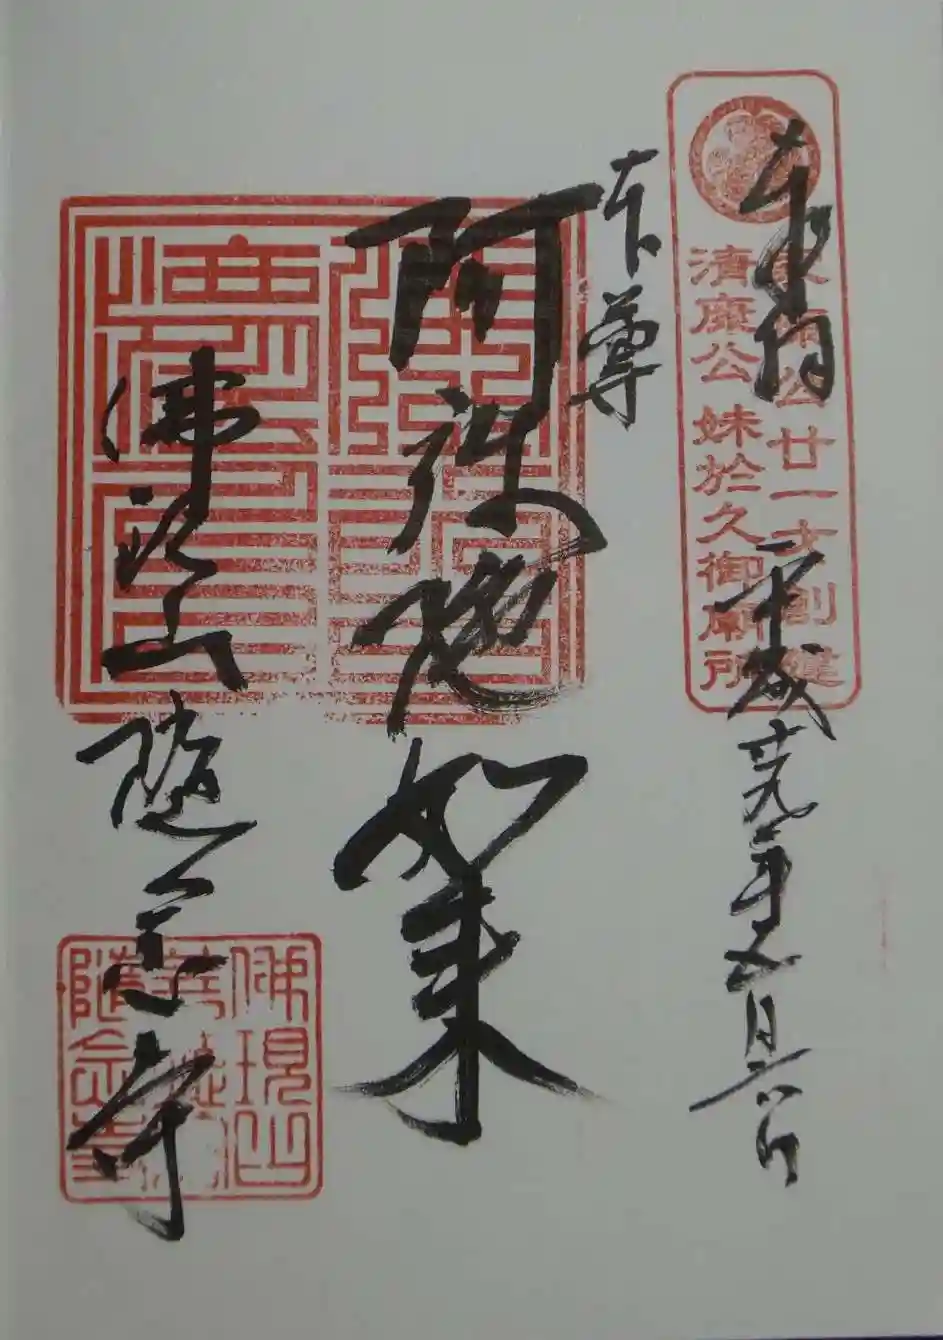 奉拝
平成廿九年五月六日
家康公廿一才創建
清康公妹於久御廟所
本尊
阿弥陀如来
佛現山
隨念寺
佛現山
隨念寺